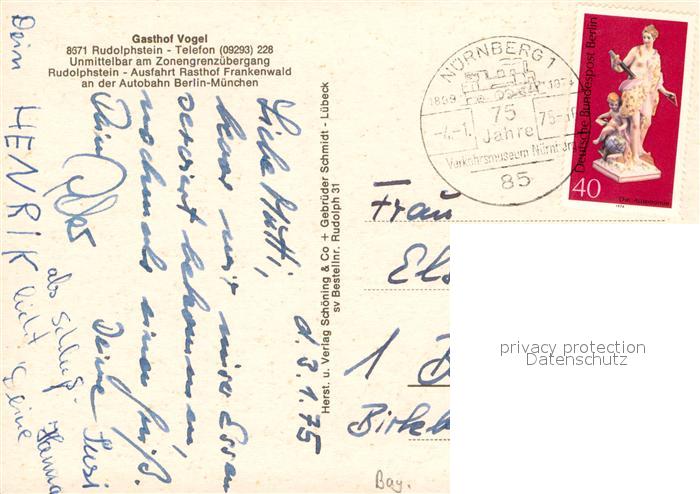 Gasthof Vogel
8671 Rudolphstein - Telefon (09293) 228
Unmittelbar am Zonengrenzübergang
Rudolphstein - Ausfahrt Rasthof Frankenwald
an der Autobahn Berlin-München
d. 3.1.75
Liebe Mutti,
bevor wir unser Essen
serviert bekommen,
nochmals einen Gruß.
Deine Susi
Dein
Dein HENRIK
als Schluß
Deine Hanna
Herst. u. Verlag Schöning & Co + Gebrüder Schmidt - Lübeck
sv Bestellnr. Rudolph 31
NÜRNBERG 1
1899
1974
75
Jahre
-4.-1.
75-10
Verkehrsmuseum Nürnberg
85
Deutsche Bundespost Berlin
40
Die Astronomie
1974
Frau
Els
1
Birkb
Bay.
privacy protection
Datenschutz